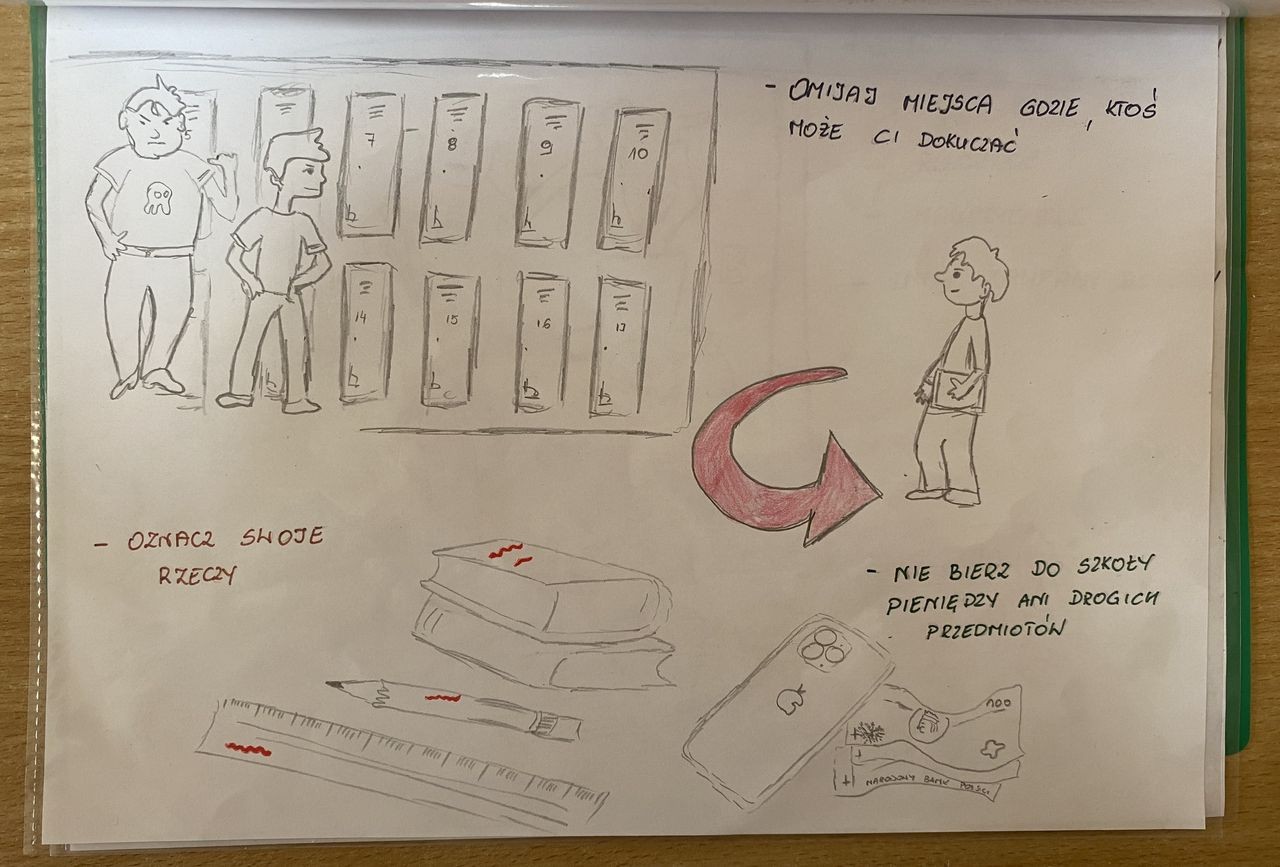 - OMIJAJ MIEJSCA GDZIE, KTOŚ
MOŻE CI DOKUCZAĆ
5
7
8
9
10
14
15
16
17
- OZNACZ SWOJE
RZECZY
- NIE BIERZ DO SZKOŁY
PIENIĘDZY ANI DROGICH
PRZEDMIOTÓW
100
NARODOWY BANK POLSCI